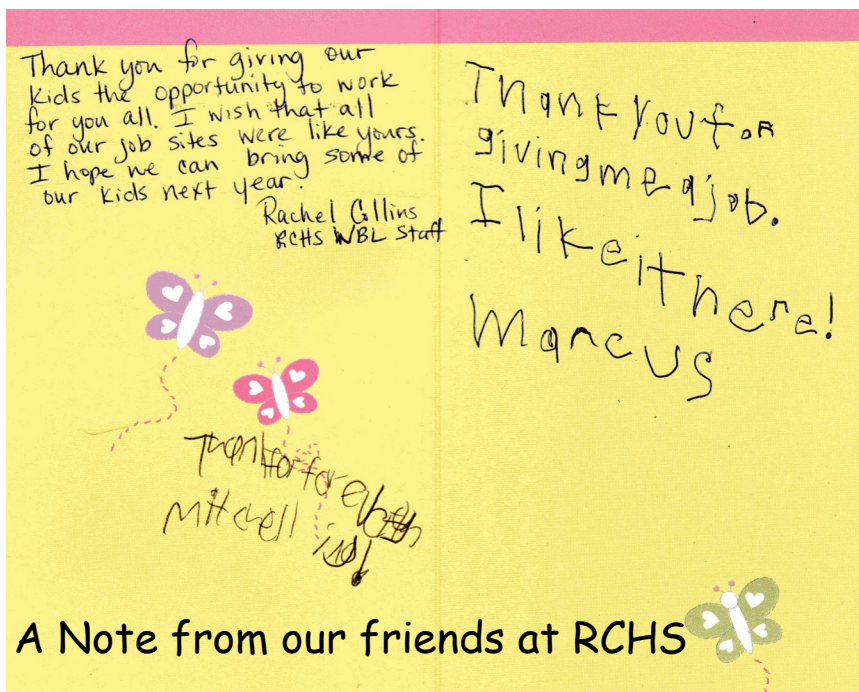 Thank you for giving our
kids the opportunity to work
for you all. I wish that all
of our job sites were like yours.
I hope we can bring some of
our kids next year!
Rachel Collins
RCHS WBL Staff
Thank you for
giving me a job.
I like it here!
Marcus
Mitchell
A Note from our friends at RCHS